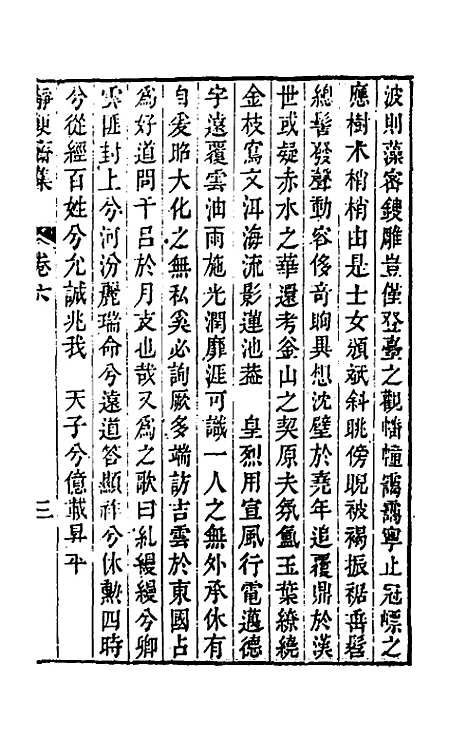 波則藻密鍐雕豈僅登臺之觀幡幢靄靄寧止冠幖之
應樹木梢梢由是士女頒斌斜眺傍睨被褐振裾垂髫
總髻發聲動容侈奇眴異想沈璧於堯年追覆鼎於漢
世或疑赤水之華還考釜山之契原夫氛氳玉葉繚繞
金枝寫文洱海流影蓮池葢　皇烈用宣風行電邁德
字遠覆雲油雨施光潤靡涯可識一人之無外承休有
自爰昭大化之無私奚必詢厥多端訪吉雲於東國占
爲好道問干呂於月支也哉又爲之歌曰糺縵縵兮卿
雲匪封上兮河汾麗瑞命兮遠道答顯祚兮休勲四時
兮從經百姓兮允誠兆我　天子兮億載昇平
靜便齋集　卷六　三